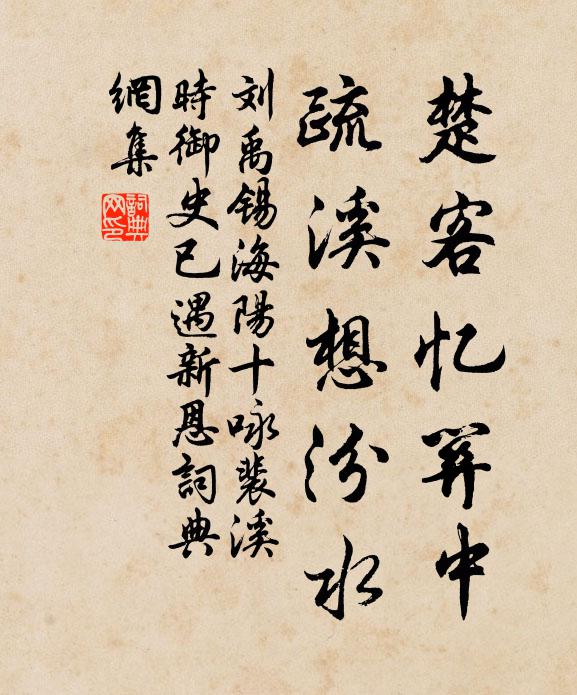 楚客忆关中
疏溪想汾水
刘禹锡海陽十咏裴溪
時御史已遇新恩詞典
網集
詞典
网印